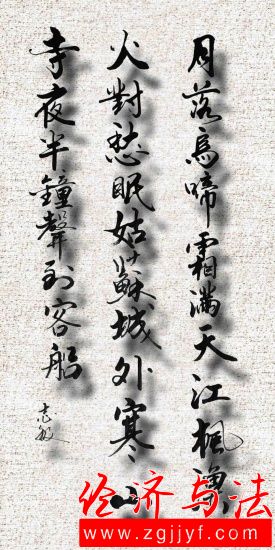 月落烏啼霜滿天江楓漁
火對愁眠姑蘇城外寒山
寺夜半鐘聲到客船
志敏
经济与法
www.zgjjyf.com